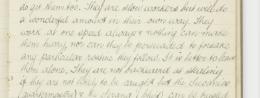 do get them too. They are slow workers but will do
a wonderful amount in their own way. They
work at one speed always & nothing can make
them hurry, nor can they be persuaded to forsake
any particular routine they follow. It is better to leave
them alone. They are not
are not likely to be caught but the
& the can be